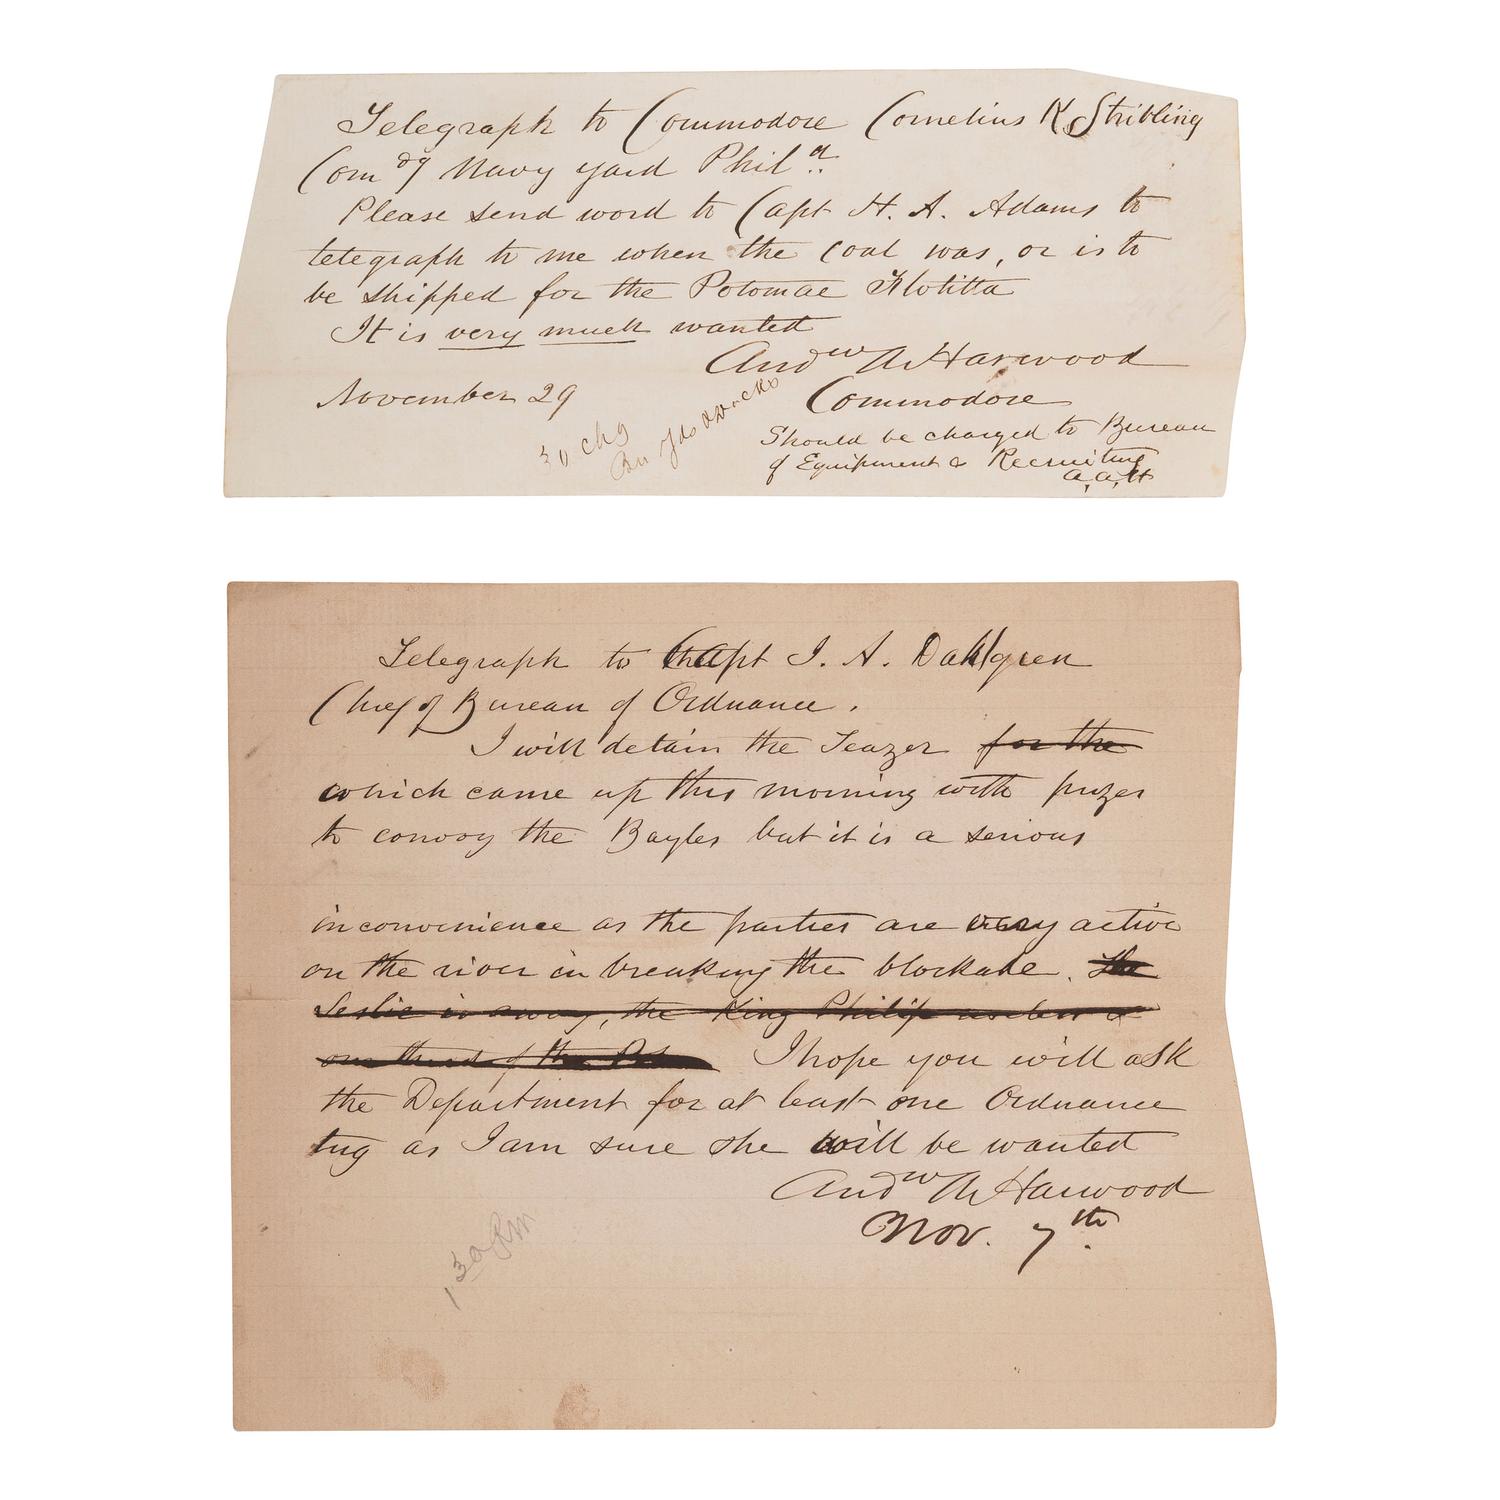 Telegraph to Commodore Cornelius K. Stribling
Com dg Navy yard Phil a.
Please send word to Capt H. A. Adams to
telegraph to me when the coal was, or is to
be shipped for the Potomac Flotilla
It is very much wanted
And w A Harwood
November 29
Commodore
30 chg
Bu Yds & Docks
Should be charged to Bureau
of Equipment & Recruiting
A.A.H
Telegraph to Capt J. A. Dahlgren
Chief of Bureau of Ordnance.
I will detain the Teazer for the
which came up this morning with prizes
to convoy the Bayles but it is a serious
inconvenience as the parties are very active
on the river in breaking the blockade. The
Leslie is away, the King Philip useless &
one third of the I hope you will ask
the Department for at least one Ordnance
tug as I am sure she will be wanted
And w A Harwood
Nov. 7th.
1.30 PM